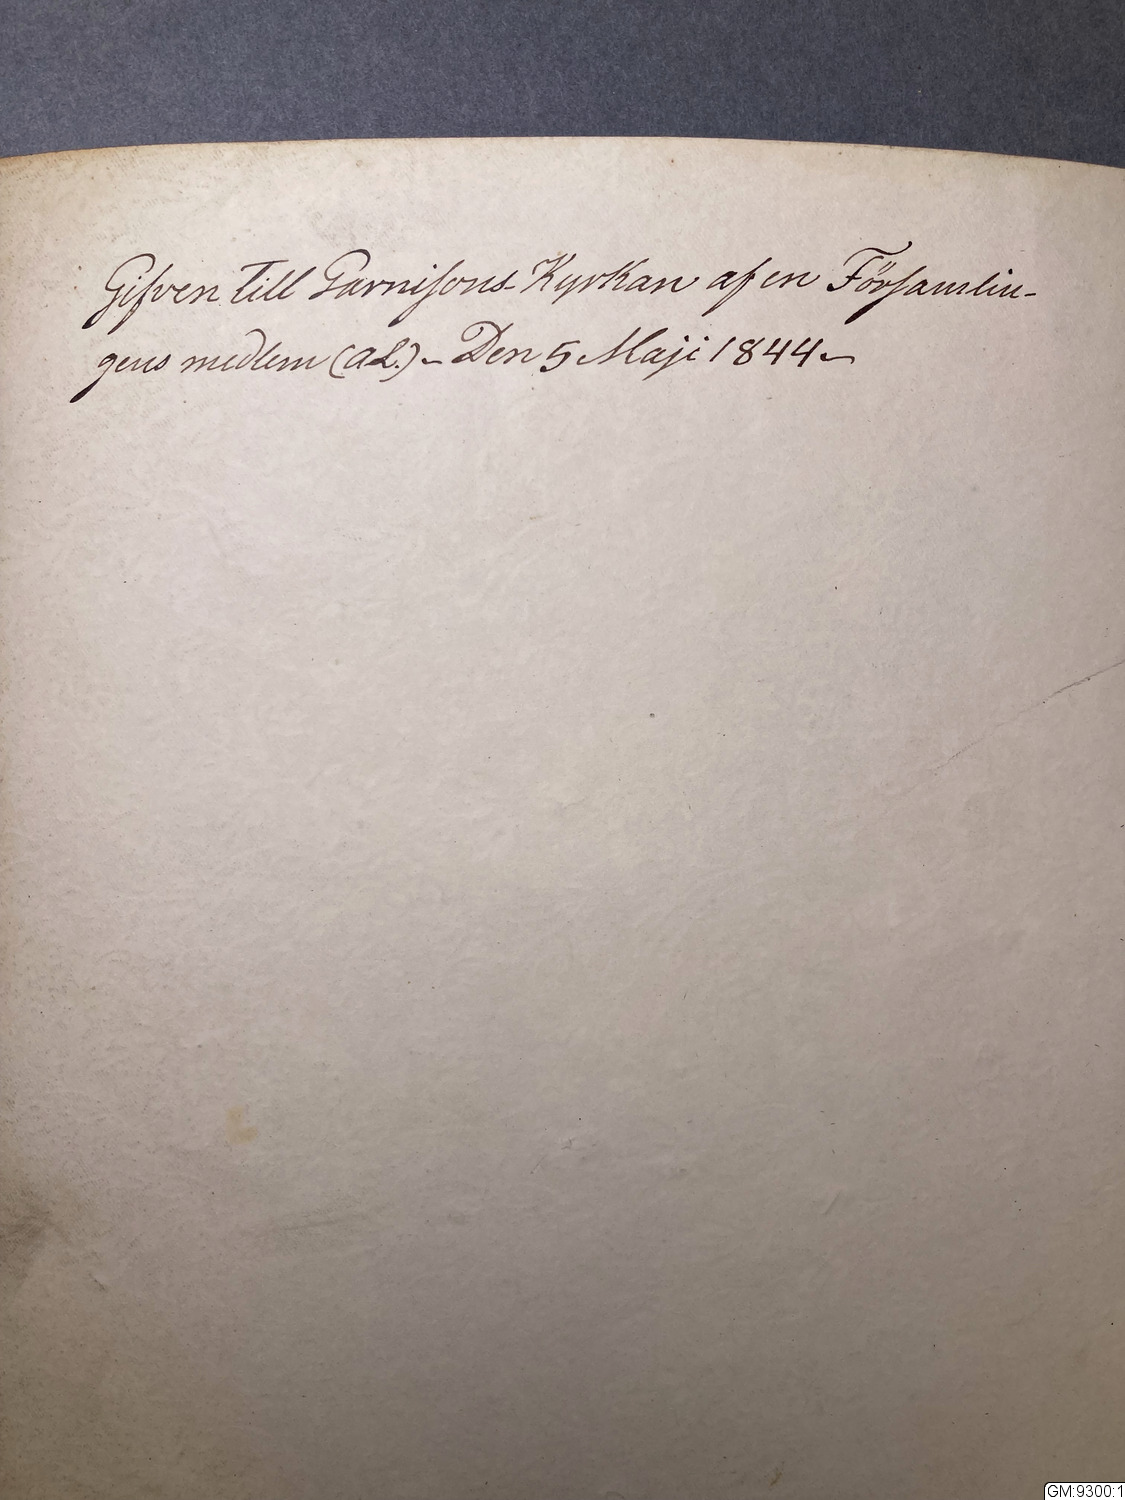 Gifven till Garnisons-Kyrkan af en Församlin-
gens medlem (aL.) – Den 5 Maji 1844 –
GM:9300:1